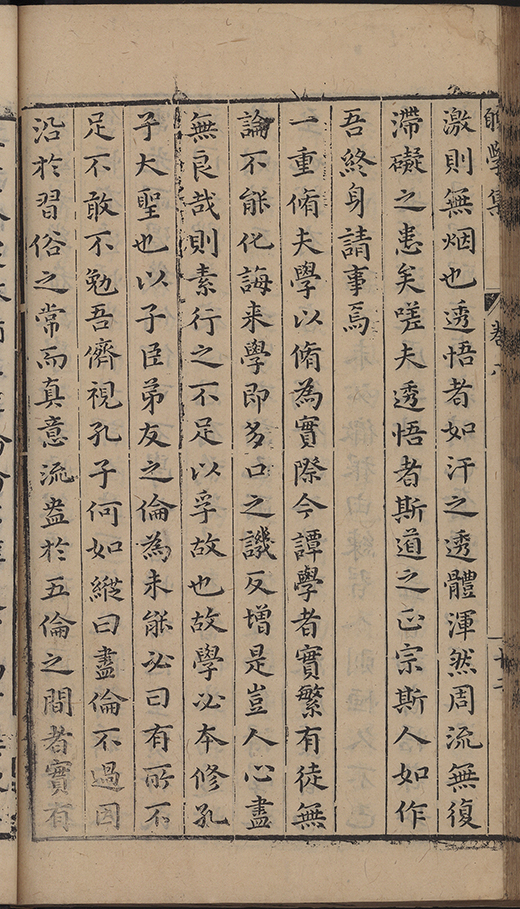 學集 卷八 十二
激則無烟也透悟者如汗之透體渾然周流無復
滯礙之患矣嗟夫透悟者斯道之正宗斯人如作
吾終身請事焉
一重脩夫學以脩為實際今譚學者實繁有徒無
論不能化誨来學即多口之譏反增是豈人心盡
無良哉則素行之不足以孚故也故學必本修孔
子大聖也以子臣弟友之倫為未能必曰有所不
足不敢不勉吾儕視孔子何如縱曰盡倫不過因
沿於習俗之常而真意流盎於五倫之間者實有